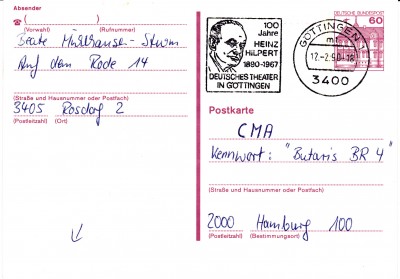 Absender
☎ ( )
(Vorwahl) (Rufnummer)
Beate Mühlhause-Sturm
Auf dem Rode 14
(Straße und Hausnummer oder Postfach)
3405 Rosdorf 2
(Postleitzahl) (Ort)
100
Jahre
HEINZ
HILPERT
1890-1967
DEUTSCHES THEATER
IN GÖTTINGEN
GÖTTINGEN 1
mr
12.-2.90.-18
3400
DEUTSCHE BUNDESPOST
60
Postkarte
CMA
Kennwort: "Butaris BR 4"
(Straße und Hausnummer oder Postfach)
2000 Hamburg 100
(Postleitzahl) (Bestimmungsort)